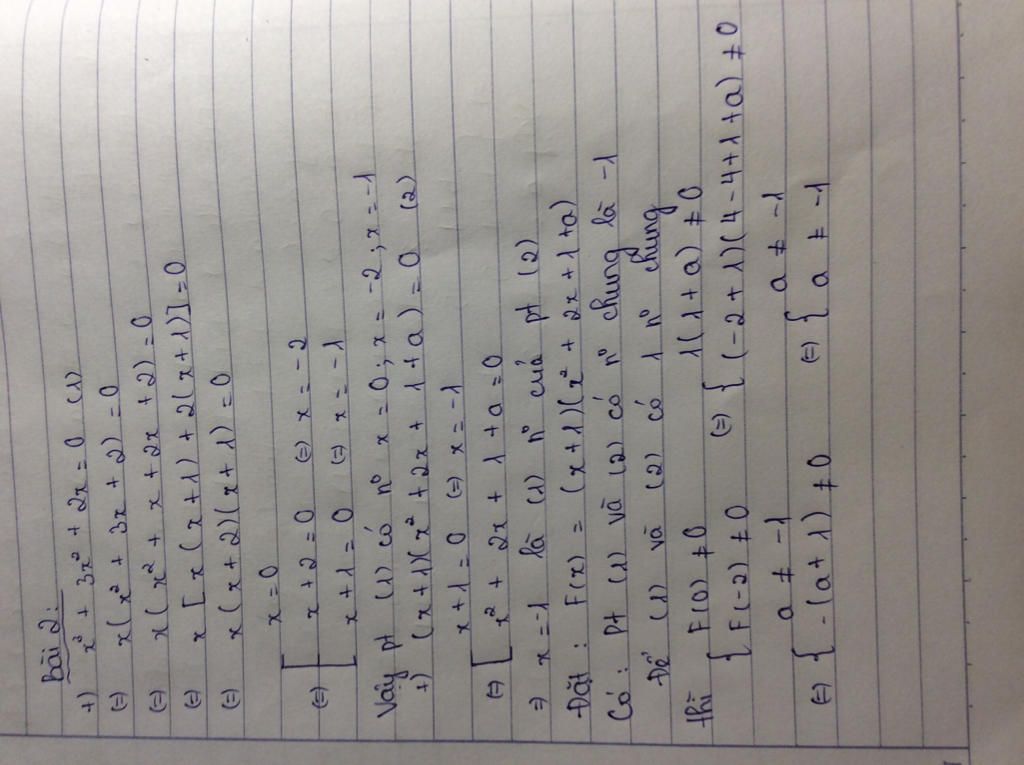 Bài 2:
+) x³ + 3x² + 2x = 0 (1)
(=) x(x² + 3x + 2) = 0
(=) x(x² + x + 2x + 2) = 0
(=) x[x(x+1) + 2(x+1)] = 0
(=) x(x+2)(x+1) = 0
x = 0
(=) [ x + 2 = 0 (=) x = -2
x + 1 = 0 (=) x = -1
Vậy pt (1) có nº x = 0; x = -2; x = -1
+) (x+1)(x² + 2x + 1 + a) = 0 (2)
x + 1 = 0 (=) x = -1
(=) [ x² + 2x + 1 + a = 0
=> x = -1 là (1) nº của pt (2)
Đặt : F(x) = (x+1)(x² + 2x + 1 + a)
Có : pt (1) và (2) có nº chung là -1
Để (1) và (2) có 1 nº chung
thì F(0) ≠ 0 1(1 + a) ≠ 0
{ F(-2) ≠ 0 (=) { (-2 + 1)(4 - 4 + 1 + a) ≠ 0
a ≠ -1 a ≠ -1
(=) { -(a + 1) ≠ 0 (=) { a ≠ -1